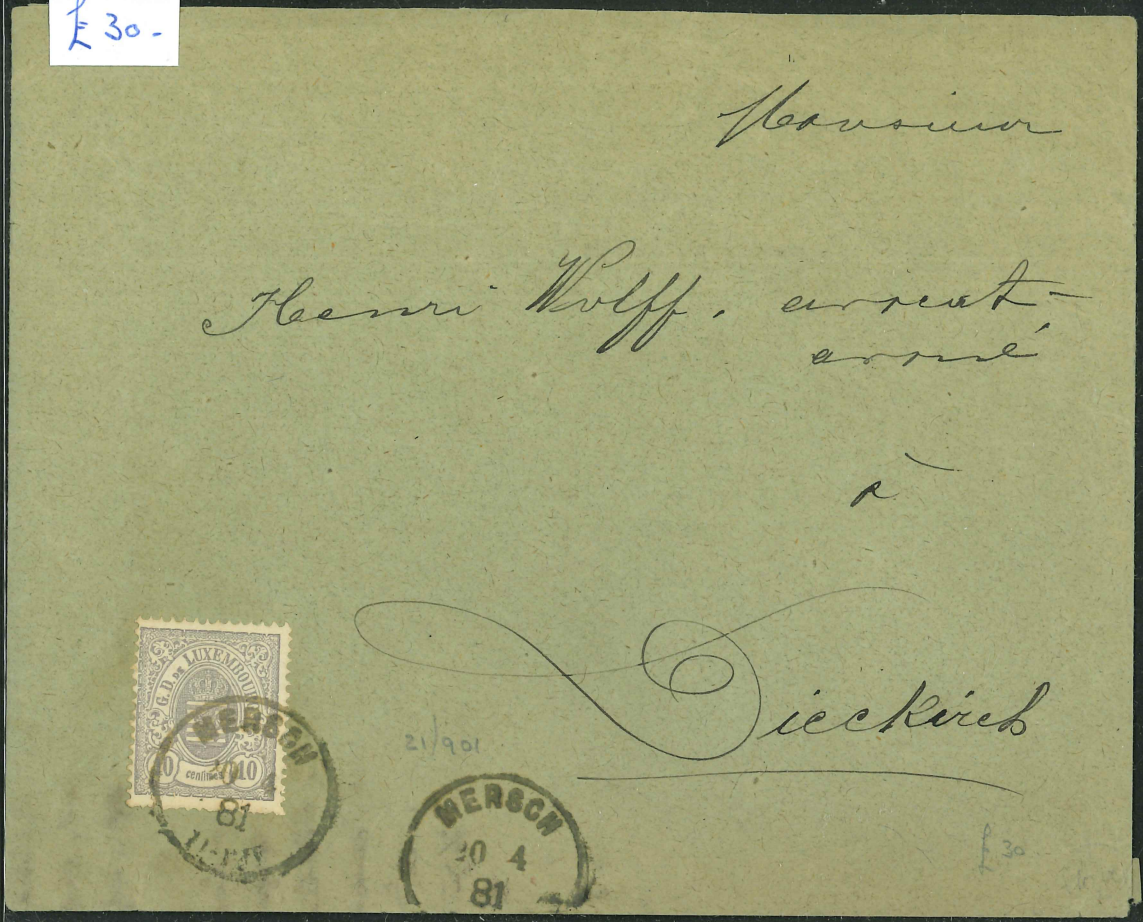 £ 30.-
Monsieur
Henri Wolff, avocat-
avoué
à
Diekirch
G.D. DE LUXEMBOURG
10 centimes 10
MERSCH
20 4
81
21/901
MERSCH
20 4
81
£ 30